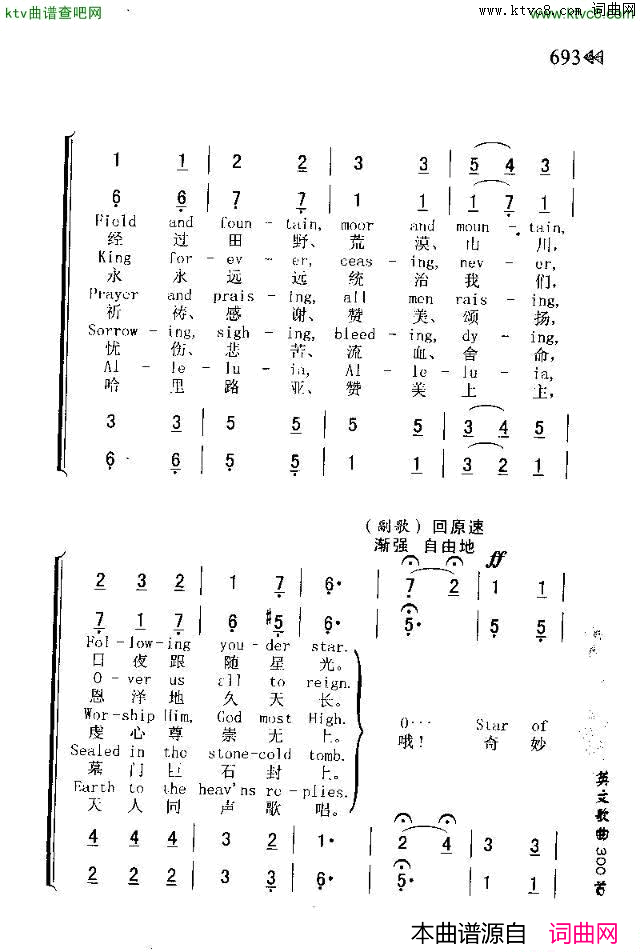 ktv曲谱查吧网
www.ktvc8.com 词曲网
www.ktvc8.com
693
1 1 | 2 2 | 3 3 | 5 4 3 |
6 6 | 7 7 | 1 1 | 1 7 1 |
Field and foun-tain, moor and moun-tain,
经过田野、荒漠、山川,
King for-ev-er, ceas-ing, nev-er,
永永远远统治我们,
Prayer and prais-ing, all men rais-ing,
祈祷、感谢、赞美、颂扬,
Sorrow-ing, sigh-ing, bleed-ing, dy-ing,
忧伤、悲苦、流血、舍命,
Al-le-lu-ia, Al-le-lu-ia,
哈里路亚、赞美上主,
3 3 | 5 5 | 5 5 | 3 4 5 |
6 6 | 5 5 | 1 1 | 3 2 1 |
(副歌) 回原速
渐强 自由地
ff
2 3 2 | 1 7 | 6· | 7 2 | 1 1 |
7 1 7 | 6 #5 | 6· | 5· | 5 5 |
Fol-lowing you-der star.
日夜跟随星光。
O-ver us all to reign.
恩泽地久天长。
Wor-ship Him, God most High.
虔心尊崇无上。
Sealed in the stone-cold tomb.
墓门巨石封上。
Earth to the heav'ns re-plies.
天人同声歌唱。
O… Star of
哦! 奇妙
4 4 4 | 3 2 | 1· | 2 4 | 3 3 |
2 2 2 | 3 3 | 6· | 5· | 1 1 |
英文歌曲300首
本曲谱源自 词曲网